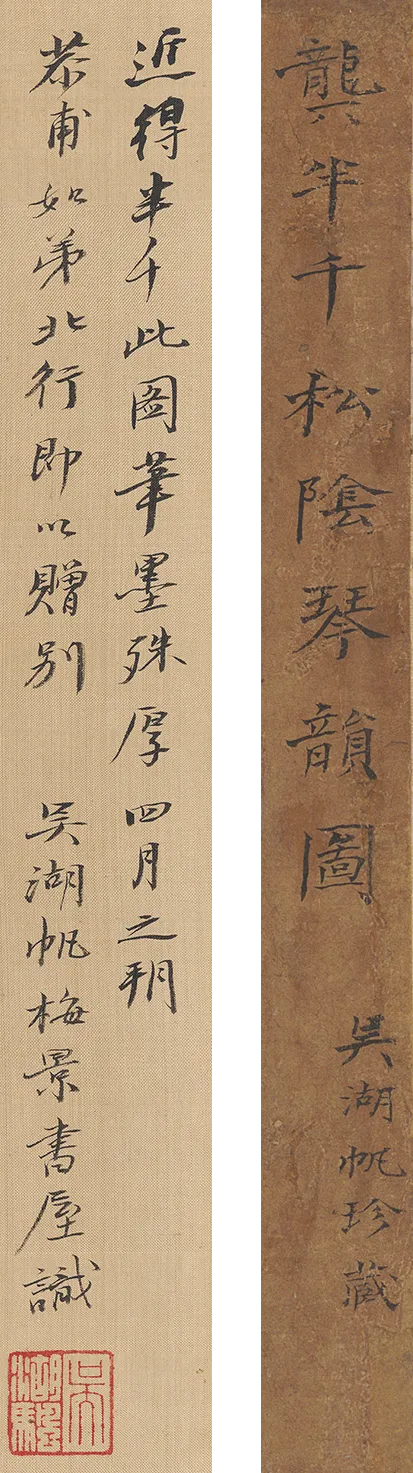 龔半千松陰琴韻圖
吳湖帆珍藏
近得半千此圖筆墨殊厚四月之朔
恭甫如弟北行即以贈別 吳湖帆梅景書屋識
吳湖颿